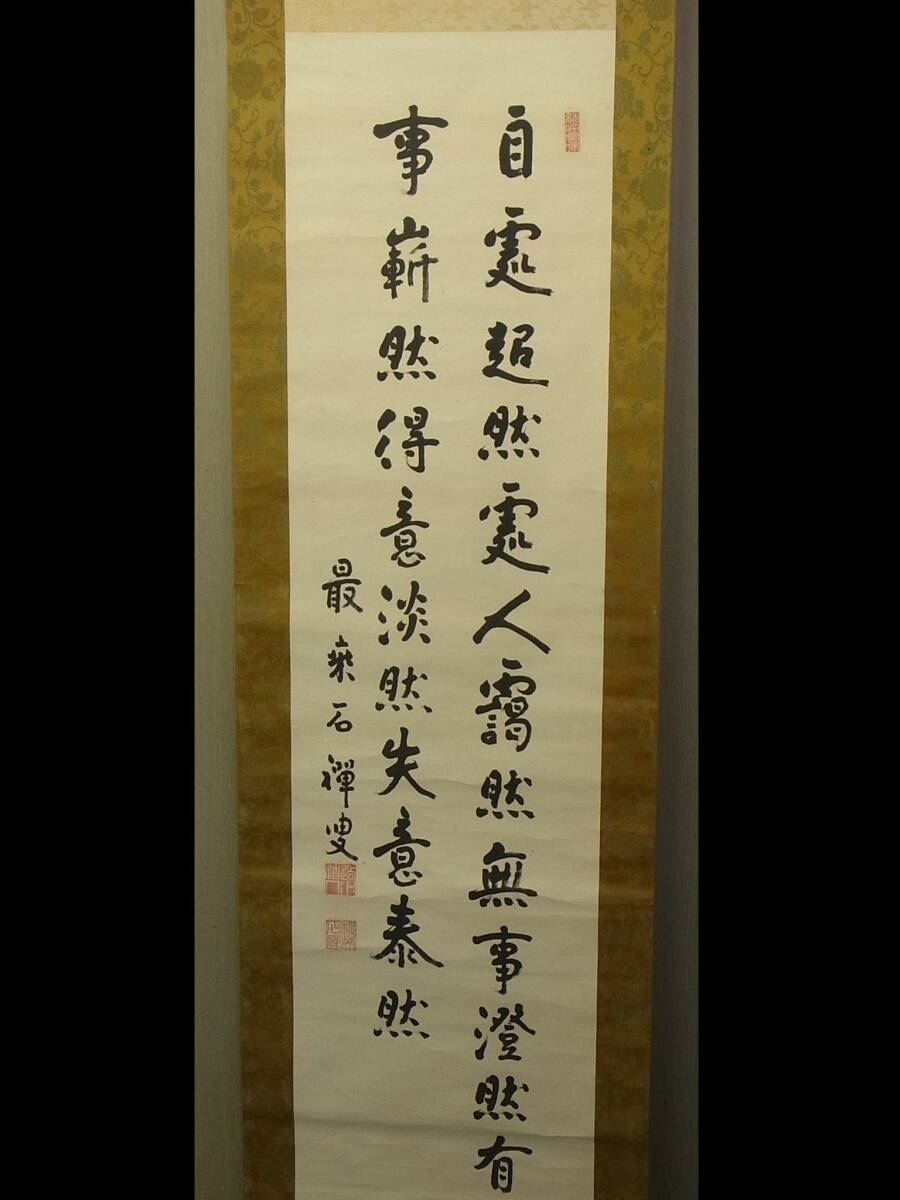 自處超然處人靄然無事澄然有
事嶄然得意淡然失意泰然
最乘石禪叟